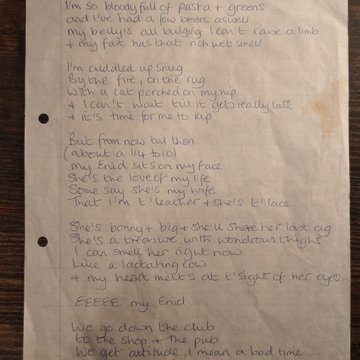 I'm so bloody full of pasta + greens
and I've had a few beers aswell
my belly's all bulging I can't raise a limb
+ my fart has that rich wet smell
I'm cuddled up snug
By the fire, on the rug
With a cat perched on my hip
+ I can't wait till it gets really late
+ it's time for me to kip
But from now till then
(about a 1/4 to 10)
my Enid sits on my face
She's the love of my life
Some say she's my wife
That I'm t'leather + she's t'lace.
She's bonny + big + she'll share her last cig
She's a treasure with wondrous thighs
I can smell her right now
Like a lactating cow
+ my heart melts at t'sight of her eyes.
EEEEE my Enid
We go down the club
to the shop + the pub
We get attitude, I mean a bad time